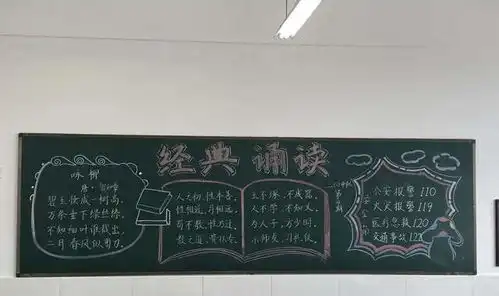 经典 诵读
咏柳
唐·贺知章
碧玉妆成一树高,
万条垂下绿丝绦。
不知细叶谁裁出,
二月春风似剪刀。
人之初,性本善。
性相近,习相远。
苟不教,性乃迁。
教之道,贵以专。
玉不琢,不成器。
人不学,不知义。
为人子,方少时。
亲师友,习礼仪。
公安报警 110
火灾报警 119
医疗急救 120
交通事故 122